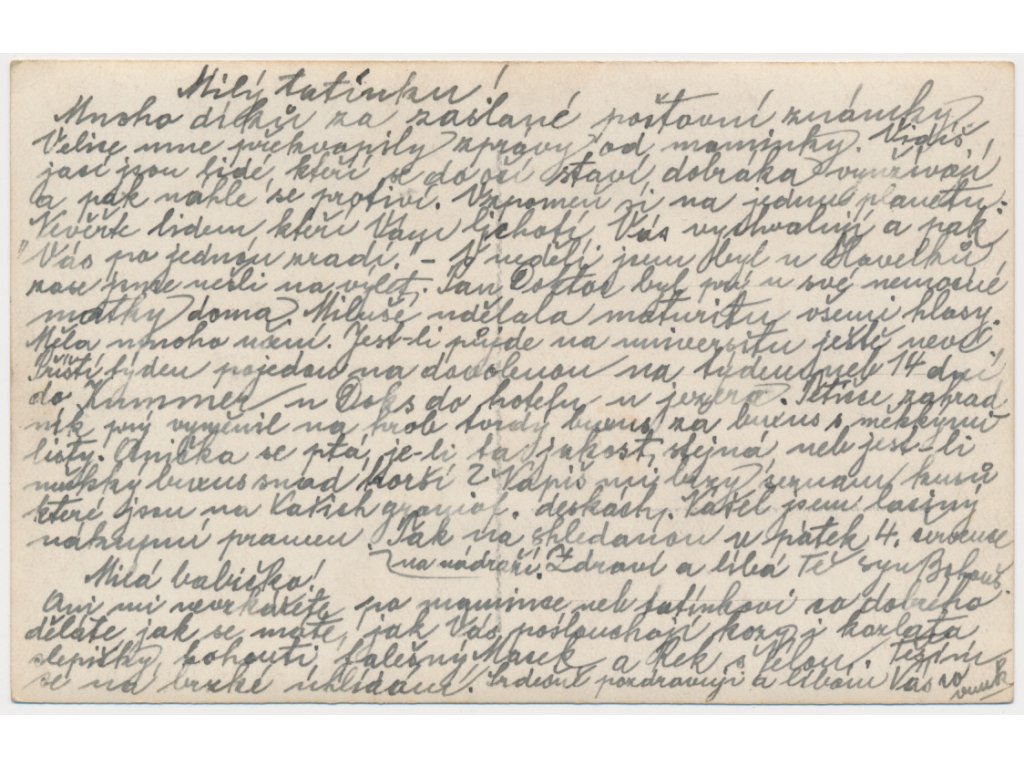 Milý tatínku!
Mnoho díků za zaslané poštovní známky.
Velice mne překvapily zprávy od maminky. Vidíš,
jací jsou lidé, kteří se do očí staví, dobráka využívají
a pak náhle se protiví. Vzpomeň si na jednu planetu:
"Nevěřte lidem kteří Vám lichotí, Vás vychvalují a pak
Vás po jednou zradí." – V neděli jsem byl u Havelků
zase jsme nešli na výlet. Pan Doktor byl prý u své nemocné
matky doma. Miluše udělala maturitu všemi hlasy.
Měla mnoho učení. Jest-li půjde na universitu ještě neví.
Příští týden pojedou na dovolenou na týden neb 14 dní
do Kummer u Doks do hotelu u jezera. Petřísse zahrad
ník prý vyměnil na hrob tvrdý buxus za buxus s měkkými
listy. Anička se ptá, je-li ta jakost stejná neb jest-li
měkký buxus snad horší? Napiš mi brzy seznam kusů
které jsou na Vašich gramof. deskách. Natřel jsem laciný
náhupní pramen. Tak na shledanou v pátek 4. července
na nádraží. Zdraví a líbá Tě syn Bohouš.
Milá babičko!
Ani mi nevzkážete, po mamince neb tatínkovi co dobrého
děláte, jak se máte, jak Vás poslouchají kozy i kozlata
slepičky, kohouti falešný Macek a Rek s Velou. Těším
se na brzké uhlídání. Srdečně pozdravuji a líbám Vás
vnuk